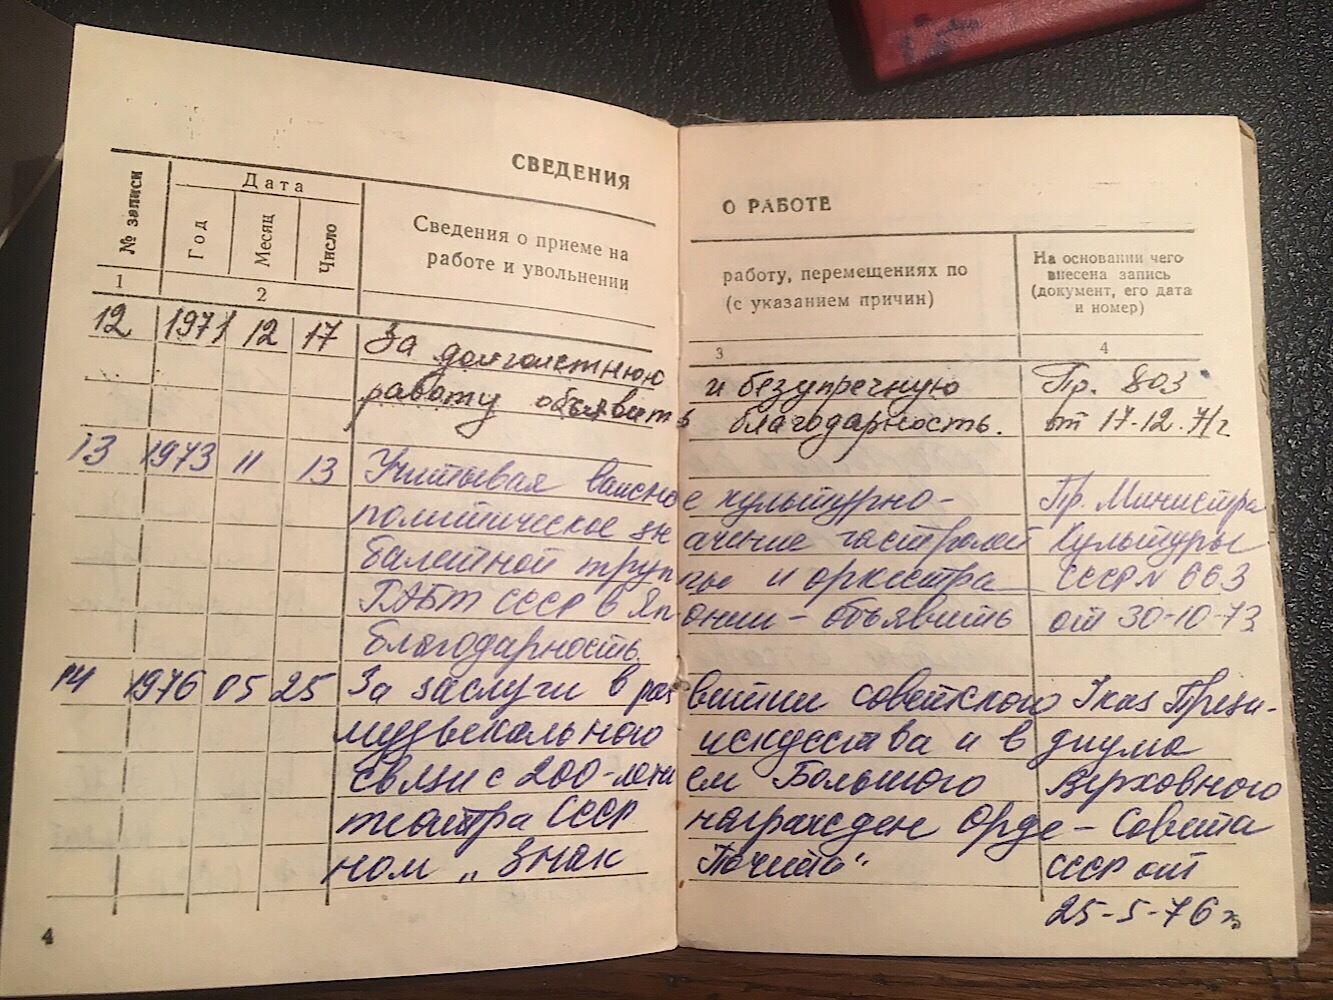 СВЕДЕНИЯ О РАБОТЕ
№ записи
Дата
Год
Месяц
Число
Сведения о приеме на работу, перемещениях по
работе и увольнении (с указанием причин)
На основании чего
внесена запись
(документ, его дата
и номер)
1 2 3 4
12 1971 12 17 За долголетнюю и безупречную Пр. 803
работу объявить благодарность. от 17-12-71г
13 1973 11 13 Учитывая важное культурно- Пр. Министра
политическое значение гастролей Культуры
балетной труппы и оркестра СССР N 663
ГАБТ СССР в Японии - объявить от 30-10-73
благодарность.
14 1976 05 25 За заслуги в развитии советского Указ Прези-
музыкального искусства и в диума
связи с 200-летием Большого Верховного
театра СССР награжден Орде- Совета
ном „Знак Почета“ СССР от
25-5-76г.
4